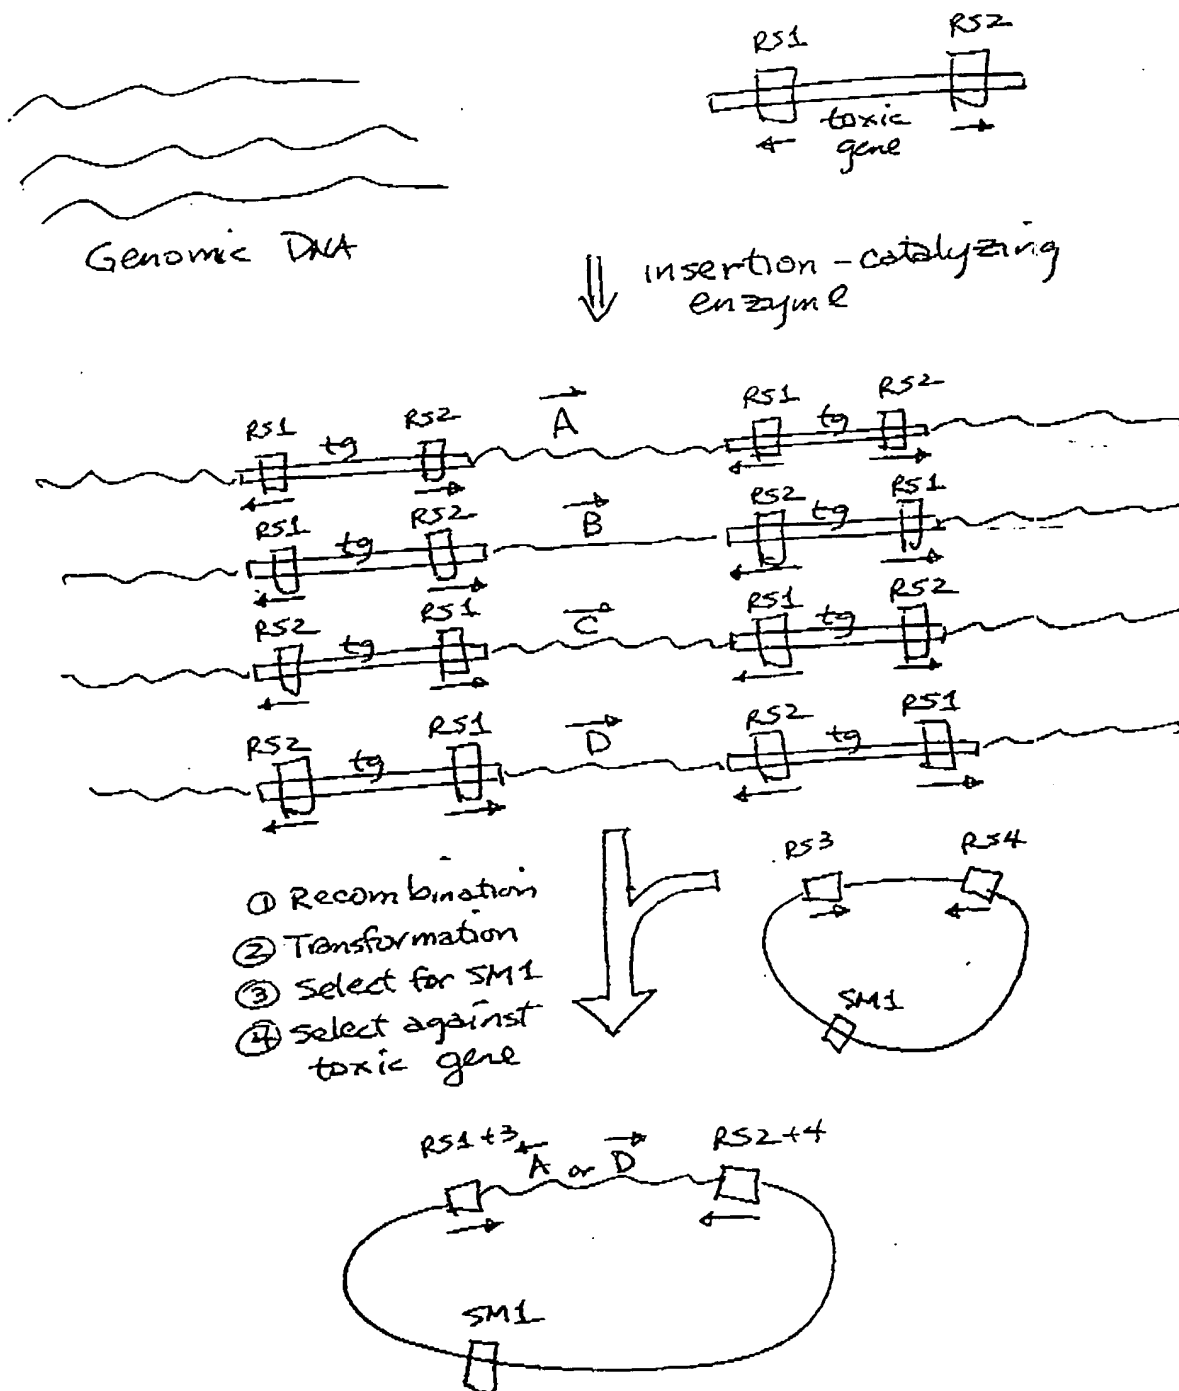 RS1 RS2
toxic
gene
Genomic DNA
insertion-catalyzing
enzyme
RS1 tg RS2 A RS1 tg RS2
RS1 tg RS2 B RS2 tg RS1
RS2 tg RS1 C RS1 tg RS2
RS2 tg RS1 D RS2 tg RS1
① Recombination
② Transformation
③ Select for SM1
④ select against
toxic gene
RS3 RS4
SM1
RS1+3 A or D RS2+4
SM1